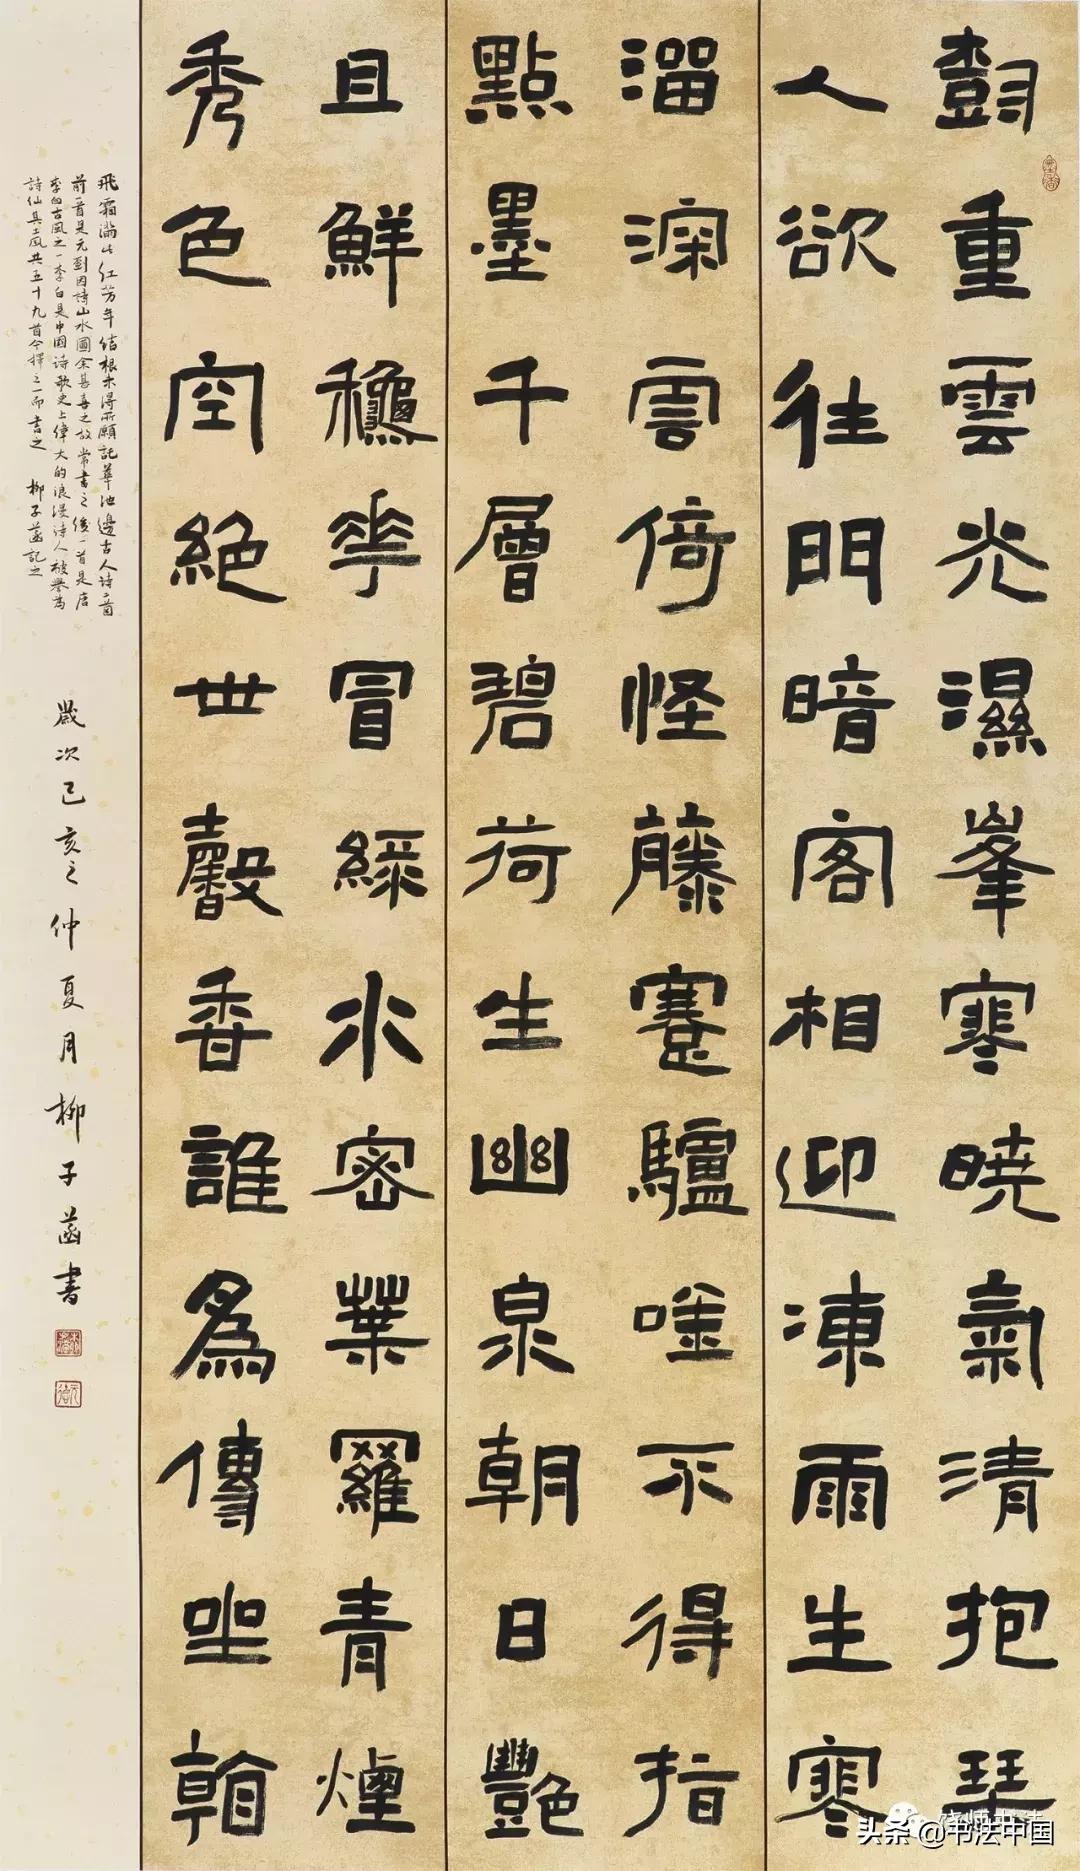 樹重雲光濕峯寒曉氣清抱琴
人欲往門暗客相迎凍雨生寒
溜深雲倚怪藤蹇驢唫不得指
點墨千層碧荷生幽泉朝日艷
且鮮穐花冒綠水密葉羅青煙
秀色空絕世馨香誰爲傳坐觀
飛霜滿此紅芳年結根未得所願託華池邊古人詩二首
前一首是元劉因詩山水圖余甚喜之故常書之後一首是唐
李白古風之一李白是中國詩歌史上偉大的浪漫詩人被譽為
詩仙其古風共五十九首今擇之一而書之 柳子菡記之
歲次己亥之仲夏月柳子菡書
头条 @书法中国